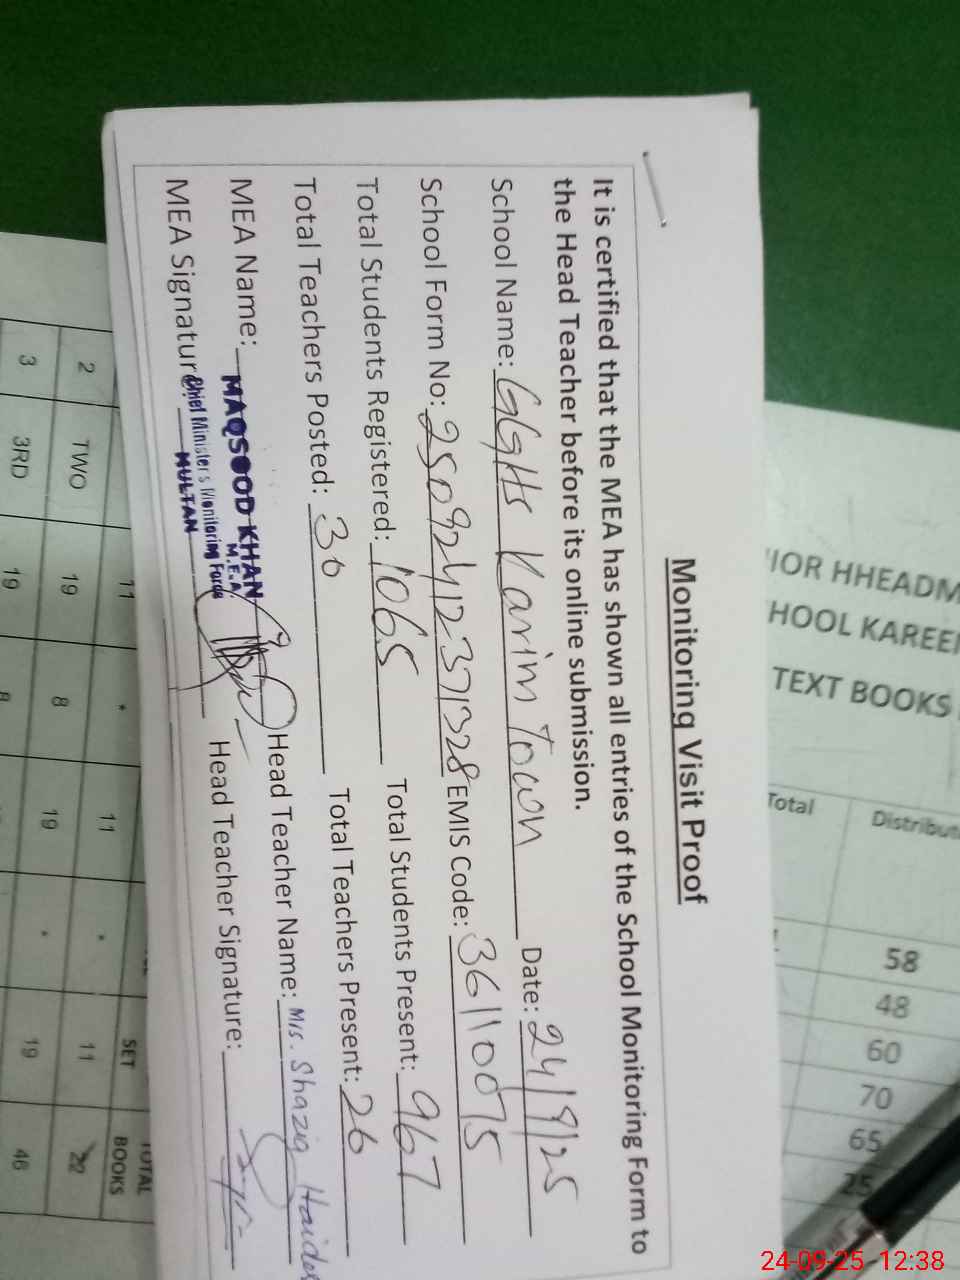 Monitoring Visit Proof
It is certified that the MEA has shown all entries of the School Monitoring Form to
the Head Teacher before its online submission.
School Name: GGHS Karim Town Date: 24/9/25
School Form No: 25092412371328 EMIS Code: 36110075
Total Students Registered: 1065 Total Students Present: 967
Total Teachers Posted: 30 Total Teachers Present: 26
MEA Name: MAQSOOD KHAN Head Teacher Name: Mrs. Shazia Haider
M.E.A
Chief Minister's Monitoring Force
MULTAN
MEA Signature: Head Teacher Signature:
IOR HHEADM
HOOL KAREE
TEXT BOOKS
Total Distribut
58
48
60
70
65
25
TOTAL
SET BOOKS
2 TWO 11 * 11 * 11
3 3RD 19 8 19 * 19 46
24-09-25 12:38